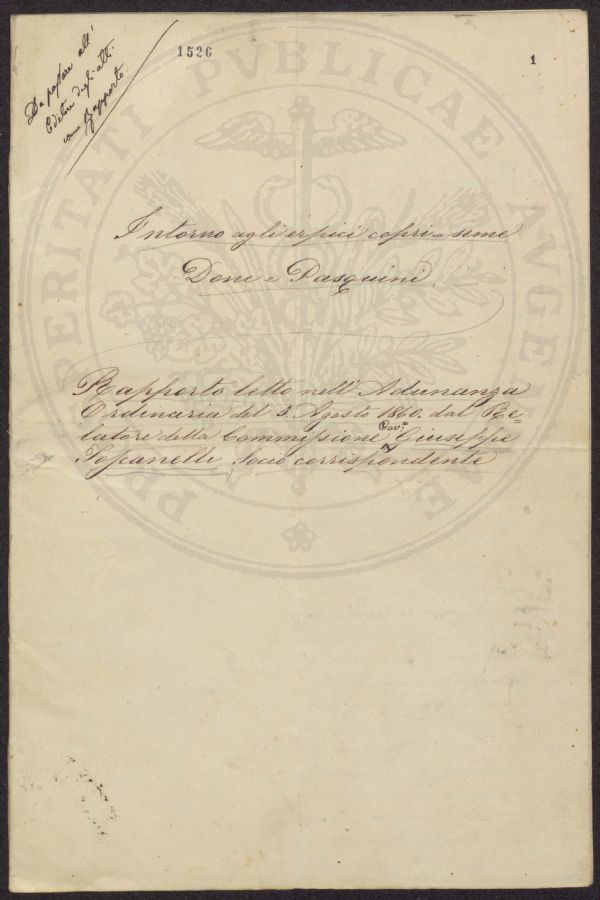 Da passare all'
Editore degli atti
come Rapporto
1526
1
PROSPERITATI PVBLICAE AVGENDAE
Intorno agli erpici copri-seme
Doni e Pasquini.
Rapporto letto nell'Adunanza
Ordinaria del 5. Agosto 1860. dal Re=
latore della Commissione Cav.e Giuseppe
Toscanelli Socio corrispondente